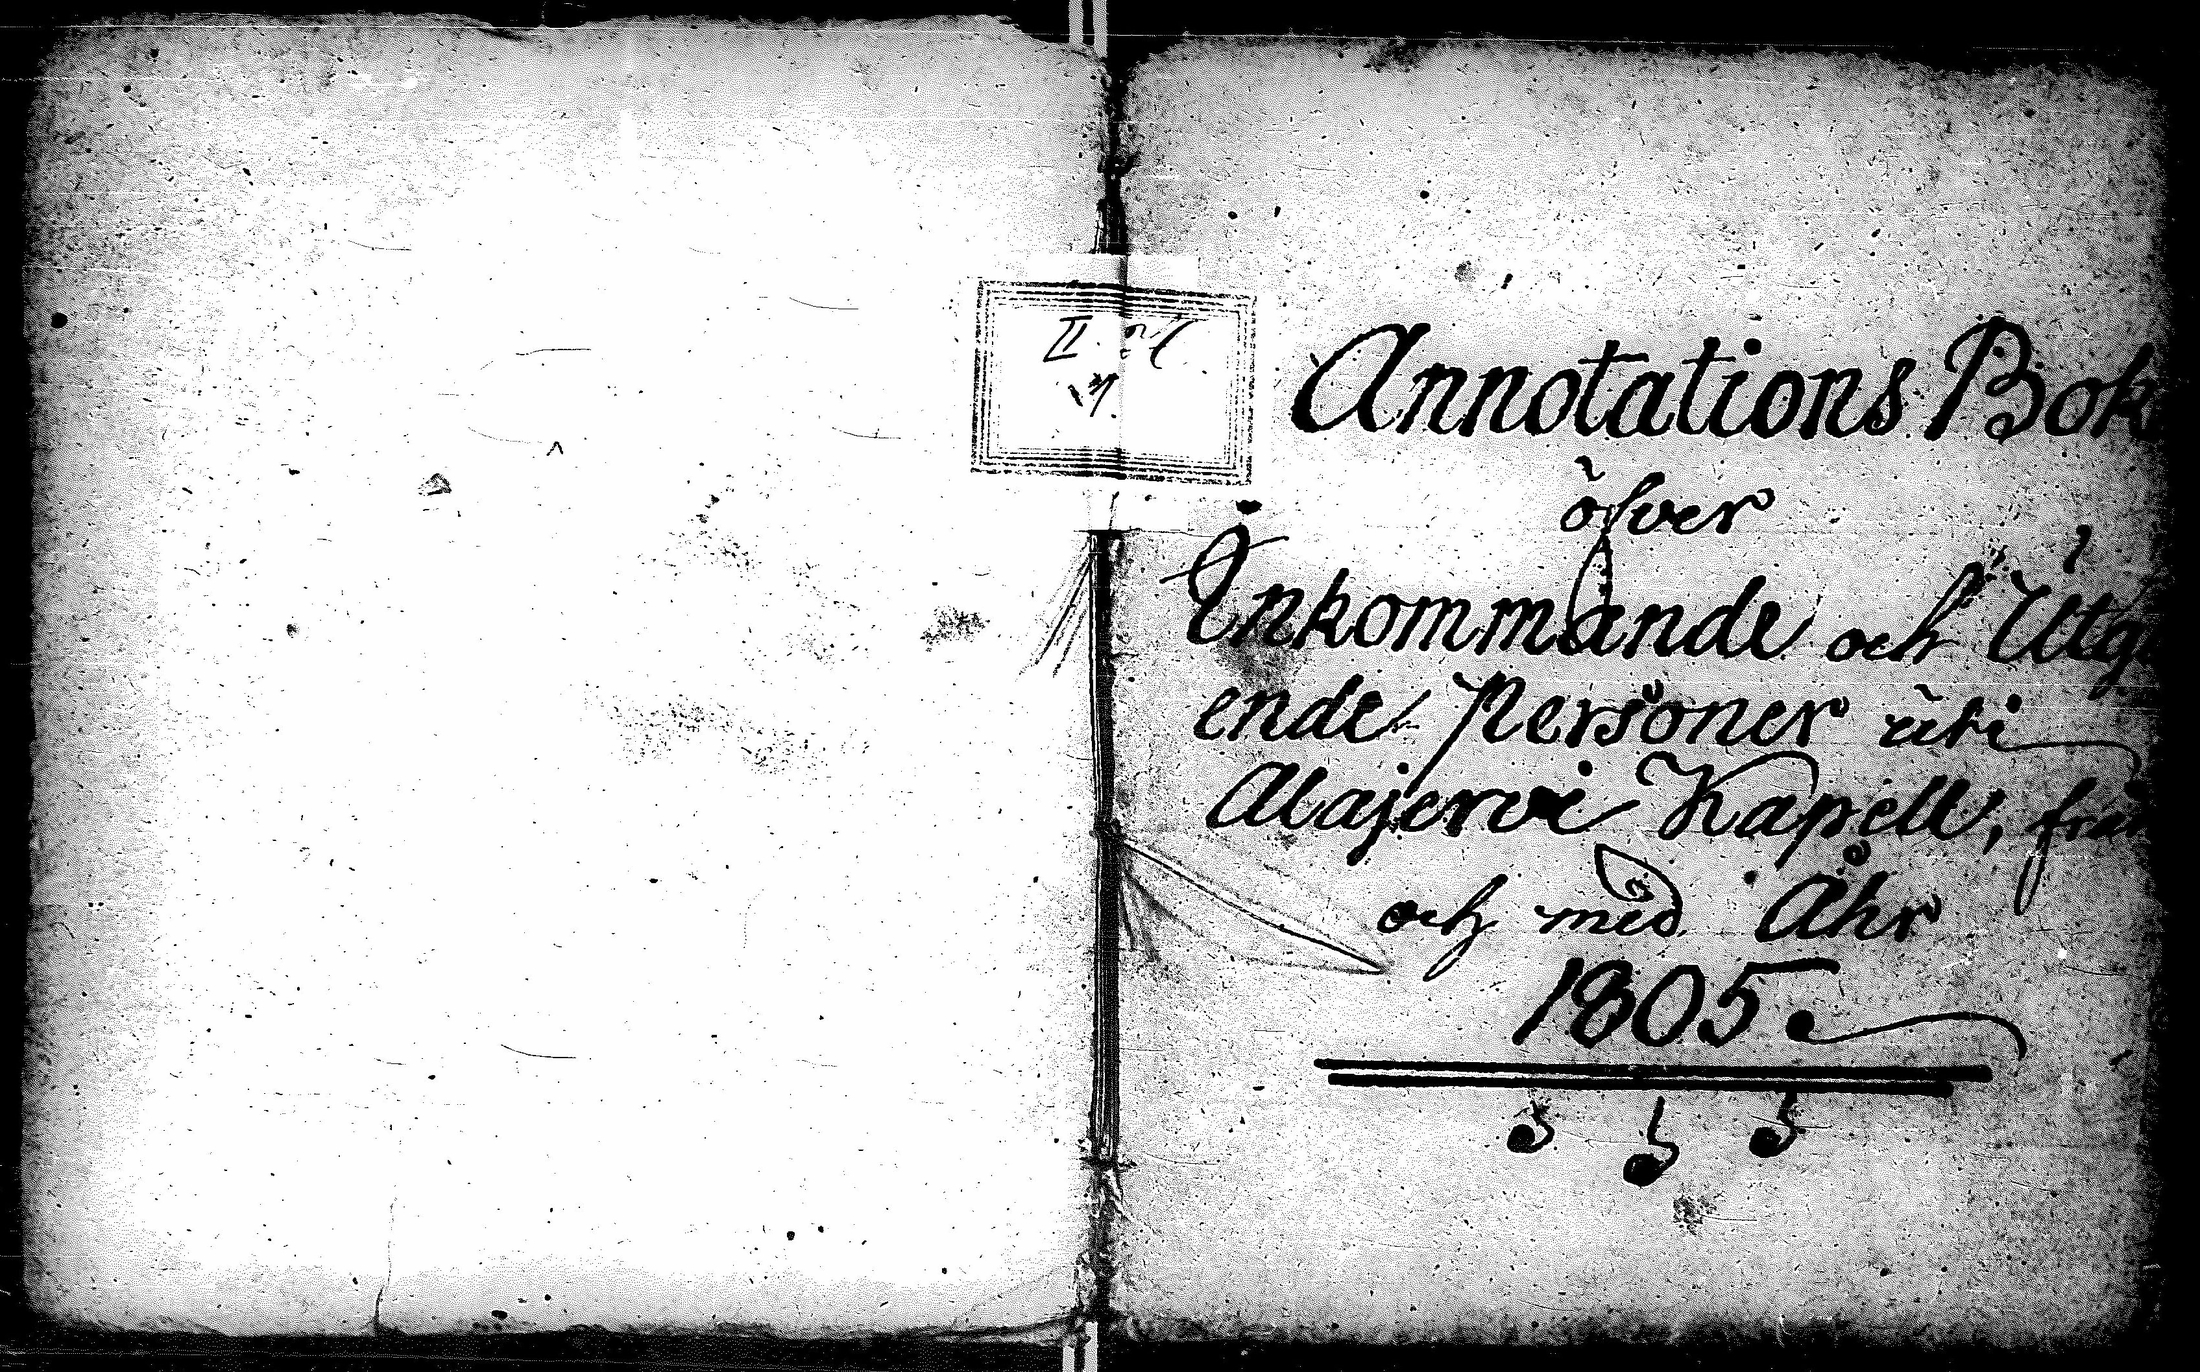 Annotations Bok
öfver
Inkommande och Utgå
ende Personer uti
Alajervi Kapell, från
och med Åhr
1805